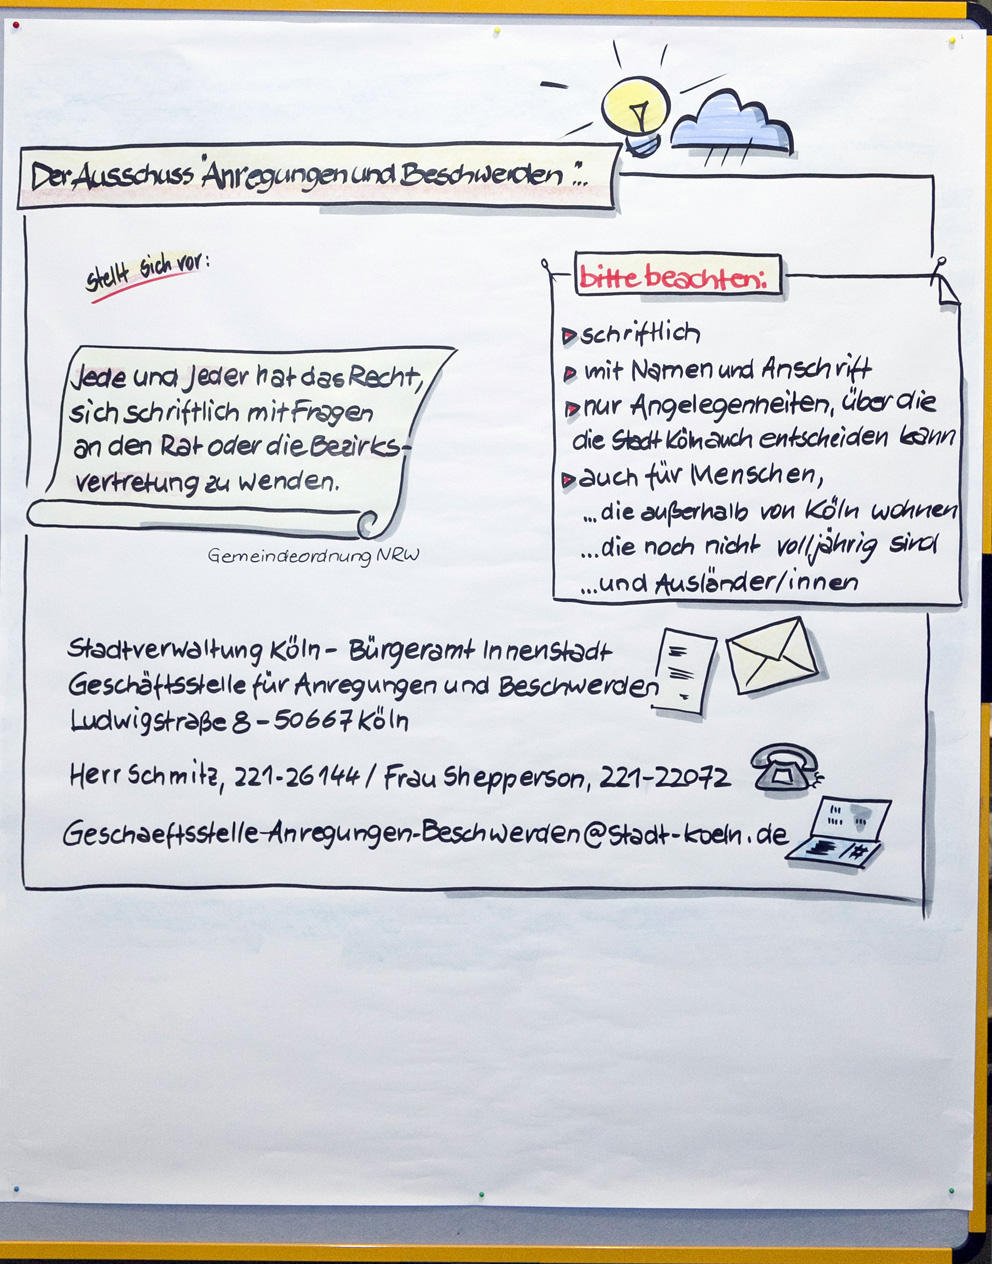 Der Ausschuss "Anregungen und Beschwerden"...
stellt sich vor:
Jede und Jeder hat das Recht,
sich schriftlich mit Fragen
an den Rat oder die Bezirks-
vertretung zu wenden.
Gemeindeordnung NRW
bitte beachten:
schriftlich
mit Namen und Anschrift
nur Angelegenheiten, über die
die Stadt Köln auch entscheiden kann
auch für Menschen,
...die außerhalb von Köln wohnen
...die noch nicht volljährig sind
...und Ausländer/innen
Stadtverwaltung Köln - Bürgeramt Innenstadt
Geschäftsstelle für Anregungen und Beschwerden
Ludwigstraße 8 - 50667 Köln
Herr Schmitz, 221-26144 / Frau Shepperson, 221-22072
Geschaeftsstelle-Anregungen-Beschwerden@stadt-koeln.de